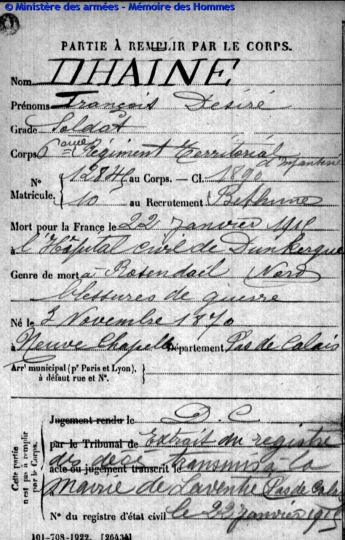 © Ministère des armées - Mémoire des Hommes
PARTIE À REMPLIR PAR LE CORPS.
Nom DHAINE
Prénoms François Désiré
Grade Soldat
Corps 6ème Régiment Territorial d'Infanterie
N° Matricule. 12845 au Corps. — Cl. 1890
10 au Recrutement Béthune
Mort pour la France le 22 janvier 1915
à l'Hôpital civil de Dunkerque
Genre de mort à Rosendaël Nord
blessures de guerre
Né le 3 Novembre 1870
à Neuve Chapelle Département Pas de Calais
Arrt municipal (pr Paris et Lyon), à défaut rue et N°.
Cette partie n'est pas à remplir par le Corps.
Jugement rendu le D C
par le Tribunal de Extrait du registre
acte ou jugement transcrit le de décès transmis à la
Mairie de Laventie Pas de Calais
N° du registre d'état civil le 22 janvier 1915
101-708-1922. [26434]